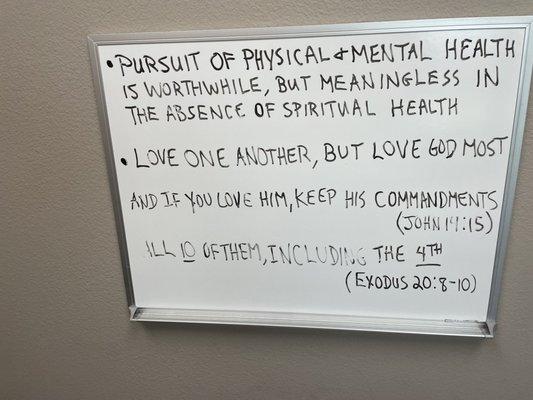 • PURSUIT OF PHYSICAL & MENTAL HEALTH
IS WORTHWHILE, BUT MEANINGLESS IN
THE ABSENCE OF SPIRITUAL HEALTH
• LOVE ONE ANOTHER, BUT LOVE GOD MOST
AND IF YOU LOVE HIM, KEEP HIS COMMANDMENTS
(JOHN 14:15)
ALL 10 OF THEM, INCLUDING THE 4TH
(EXODUS 20:8-10)